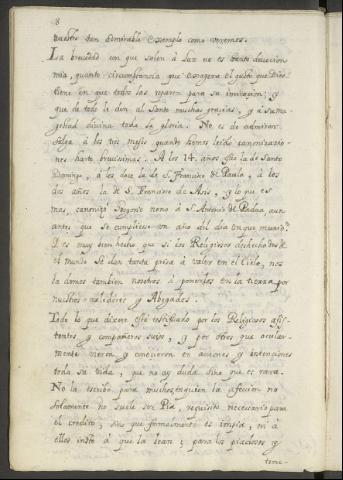 8
nuestro tan admirable exemplo como veremos.
La brevedad con que salen à luz no es tanto devocion
mia, quanto circunstancia que assegura el gusto que Dios
tiene en que todos las sepan para su imitacion; y
que de todo le den al Santo muchas gracias, y à su ma-
gestad divina toda la gloria. No es de admirar
salga à los tres meses quando hemos leido canonizacio-
nes harto brevissimas. A los 14. años fue la de Santo
Domingo, à los doce la de S. Francisco de Paula, à los
dos años la de S. Francisco de Asis, y lo que es
mas, canonizò Gregorio nono à S. Antonio de Padua aun
antes que se cumpliese un año del dia en que murio?
Y es muy bien hecho que si los Religiosos deshechos de
el mundo se dan tanta prisa à valer en el Cielo, nos
la demos tambien nosotros à ponerlos en la tierra por
nuestros valedores y Abogados.
Todo lo que dixere està testificado por los Religiosos asis-
tentes y compañeros suyos, y por otros que ocular-
mente vieron y conocieron sus acciones y intenciones
toda su vida, que no ay duda sino que es rara.
No la escribo para muchos, en quien la aficion no
solamente no suele ser Pia, requisito necesario para
el credito; sino que formalmente es impia, ni à
ellos insto à que la lean; para los piadosos y
teme-